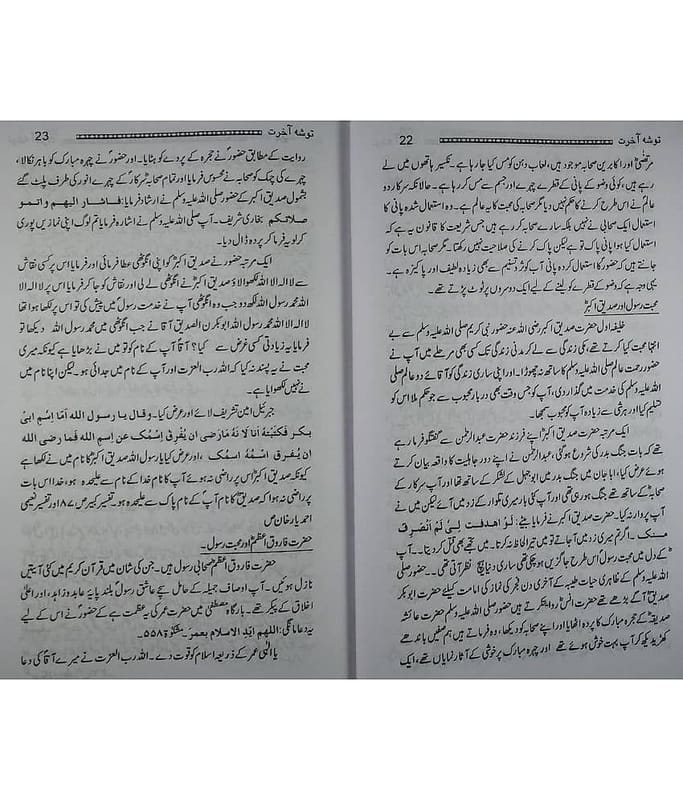 توشہ آخرت 22
مرتضیٰ اور اکابرین صحابہ موجود ہیں، لعاب دہن کو مس کیا جا رہا ہے۔ تکسیر ہاتھوں میں لے
رہے ہیں، کوئی وضو کے پانی کے قطرے چہرے اور جسم سے مس کر رہا ہے۔ حالانکہ سرکار دو
عالم نے اس طرح کرنے کا حکم نہیں دیا مگر صحابہ کی محبت کا یہ عالم ہے۔ وہ استعمال شدہ پانی کا
استعمال ایک صحابی نے نہیں بلکہ سارے صحابہ کر رہے ہیں جس شریعت کا قانون یہ ہے کہ
استعمال کیا ہوا پانی پاک تو ہے لیکن پاک کرنے کی صلاحیت نہیں رکھتا۔ مگر صحابہ اس بات کو
جانتے ہیں کہ حضور کا استعمال کردہ پانی آب کوثر و تسنیم سے بھی زیادہ لطیف اور پاکیزہ ہے۔
یہی وجہ ہے کہ وضو کے قطرے کو لینے کے لیے ایک دوسروں پر ٹوٹ پڑتے تھے۔
محبت رسول اور صدیق اکبرؓ
خلیفہ اول حضرت صدیق اکبر رضی اللہ عنہ حضور نبی کریم صلی اللہ علیہ وسلم سے بے
انتہا محبت کیا کرتے تھے، مکی زندگی سے لے کر مدنی زندگی تک کسی بھی مرحلے میں آپ نے
حضور رحمت عالم صلی اللہ علیہ وسلم کا ساتھ نہ چھوڑا۔ اور اپنی ساری زندگی کو آقائے دو عالم صلی
اللہ علیہ وسلم کی خدمت میں گذار دی، آپ کو جس وقت بھی دربار محبوب سے جو حکم ملا اس کو
تسلیم کیا اور ہر شی سے زیادہ آپ کو محبوب سمجھا۔
ایک مرتبہ حضرت صدیق اکبرؓ اپنے فرزند حضرت عبدالرحمٰن سے گفتگو فرما رہے
تھے کہ بات جنگ بدر کی شروع ہو گئی، عبدالرحمٰن نے اپنے دور جاہلیت کا واقعہ بیان کرتے
ہوئے عرض کیا، ابا جان میں جنگ بدر میں ابو جہل کے لشکر کے ساتھ تھا اور آپ سرکار کے
صحابہ کے ساتھ تھے جنگ ہو رہی تھی اور آپ کئی بار میری تلوار کے زد میں آئے لیکن میں نے
آپ پر وار نہ کیا۔ حضرت صدیق اکبر نے فرمایا بیٹے: لَوْ اھدفت لِیْ لَمْ انْصَرِف
عنک ۔ اگر تم میری زد میں آ جاتے تو میں تیرا لحاظ نہ کرتا۔ میں تجھے بھی قتل کر دیتا۔ آپ
کے دل میں محبت رسولؐ اس طرح جاگزیں ہو چکی تھی ساری دنیا ہیچ نظر آتی تھی ۔۔ حضور صلی
اللہ علیہ وسلم کے ظاہری حیات طیبہ کے آخری دن فجر کی نماز کی امامت کیلئے حضرت ابوبکر
صدیق آگے بڑھے تھے حضرت انس روایت کرتے ہیں حضور صلی اللہ علیہ وسلم حضرت عائشہ
صدیقہ کے حجرہ مبارک کا پردہ اٹھایا اور اپنے صحابہ کو دیکھا، وہ فرماتے ہیں ہم صفیں باندھے
کھڑے دیکھ کر آپ بہت خوش ہوئے تھے اور چہرہ مبارک پر خوشی کے آثار نمایاں تھے، ایک
توشہ آخرت 23
روایت کے مطابق حضور نے حجرہ کے پردے کو ہٹایا۔ اور حضور نے چہرہ مبارک کو باہر نکالا،
چہرے کی چمک کو صحابہ نے محسوس فرمایا اور تمام صحابہ سرکار کے چہرے انور کی طرف پلٹ گئے
بشمول صدیق اکبر کے حضور صلی اللہ علیہ وسلم نے ارشاد فرمایا: فاشار الیھم واتمو
صلاتکم بخاری شریف۔ آپ صلی اللہ علیہ وسلم نے اشارہ فرمایا تم لوگ اپنی نمازیں پوری
کر لو یہ فرما کر پردہ ڈال دیا۔
ایک مرتبہ حضور نے صدیق اکبرؓ کو اپنی انگوٹھی عطا فرمائی اور فرمایا اس پر کسی نقاش
سے لا الہ الا اللہ لکھوا لاؤ صدیق اکبرؓ نے انگوٹھی لے لی اور نقاش کو جا کر فرمایا اس پر لا الہ الا
اللہ محمد رسول اللہ لکھ دو جب وہ انگوٹھی آپ نے خدمت رسول میں پیش کی تو اس پر لکھا ہوا تھا
لا الہ الا اللہ محمد رسول اللہ ابوبکرن الصدیق آقا نے جب انگوٹھی میں محمد رسول اللہ دیکھا تو
فرمایا یہ زیادتی کسی غرض سے کیا؟ آقا آپ کے نام کو تو میں نے بڑھایا ہے کیونکہ میری
محبت نے یہ پسند نہ کیا کہ اللہ رب العزت اور آپ کے نام میں جدائی ہو۔ لیکن اپنا نام میں
نے نہیں لکھوایا ہے۔
جبرئیل امین تشریف لائے اور عرض کیا۔ وقال یا رسول اللہ اَمَا اِسم ابی
بکر فَکَتَبْتُہ اَنَا لَا نَہُ مَارَضی ان یُفَرِقَ اِسْمُک عن اِسم اللہ فما رضی اللہ
ان یُفرق اسْمُہ اسمک ، اور عرض کیا یا رسول اللہ صدیق اکبرؓ کا نام میں نے لکھا ہے
کیونکہ صدیق اکبرؓ اس پر راضی نہ ہوئے آپ کا نام خدا کے نام سے علیحدہ ہو، خدا اس بات
پر راضی نہ ہوا کہ صدیق کا نام آپ کے نام پاک سے علیحدہ ہو۔ تفسیر کبیر ص ۸۷ اور تفسیر نعیمی
احمد یار خان ص
حضرت فاروق اعظمؓ اور محبت رسول۔
حضرت فاروق اعظمؓ صحابی رسول ہیں۔ جن کی شان میں قرآن کریم میں کئی آیتیں
نازل ہوئیں۔ آپ اوصاف جمیلہ کے حامل سچے عاشق رسولؐ بلند پایہ عابد و زاہد، اور اعلیٰ
اخلاق کے پیکر تھے۔ بارگاہ مصطفیٰ میں حضرت عمر کی یہ عظمت ہے کے حضور نے اس کے لیے
یہ دعا مانگی: اللھم ایّدِ الاسلام بعمرَ۔ مشکوٰۃ ۵۵۸
یا الٰہی عمر کے ذریعہ اسلام کو قوت دے۔ اللہ رب العزت نے میرے آقا کی دعا